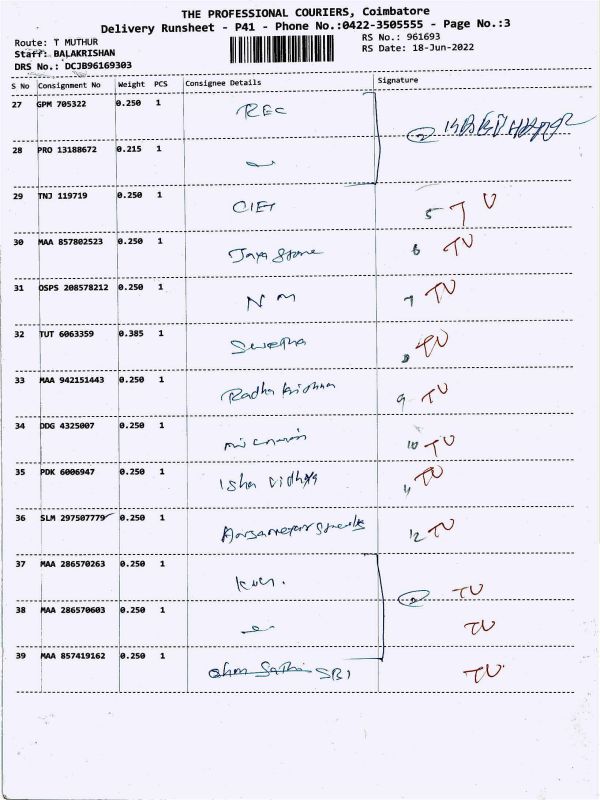 THE PROFESSIONAL COURIERS, Coimbatore
Delivery Runsheet - P41 - Phone No.:0422-3505555 - Page No.:3
Route: T MUTHUR
RS No.: 961693
Staff: BALAKRISHAN
RS Date: 18-Jun-2022
DRS No.: DCJB96169303
S No Consignment No Weight PCS Consignee Details Signature
27 GPM 705322 0.250 1 REC
28 PRO 13188672 0.215 1
29 TNJ 119719 0.250 1 CIET 5 TU
30 MAA 857802523 0.250 1 Jaya Stone 6 TU
31 OSPS 208578212 0.250 1 N M 7 TU
32 TUT 6063359 0.385 1 Swetha 8 TU
33 MAA 942151443 0.250 1 Radha Krishna 9 TU
34 DDG 4325007 0.250 1 10 TU
35 PDK 6006947 0.250 1 Isha Vidhya 11 TU
36 SLM 297507779 0.250 1 12 TU
37 MAA 286570263 0.250 1 2 TU
38 MAA 286570603 0.250 1 TU
39 MAA 857419162 0.250 1 SBI TU